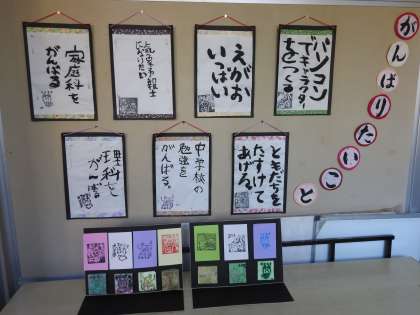 がんばりたいこと
パソコン
でキャラクター
をつくる
えがお
いっぱい
家庭科を
がんばる
ともだちを
たすけて
あげる。
中学校の
勉強を
がんばる。
理科を
がんばる